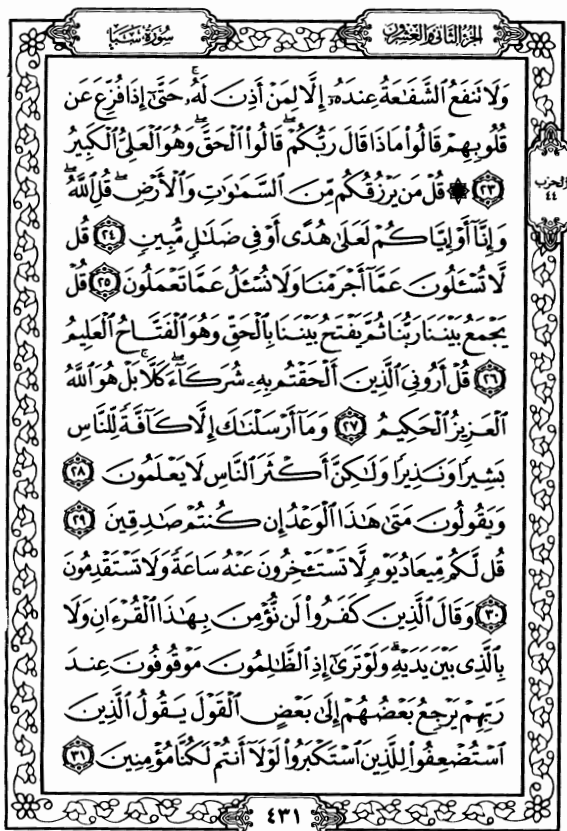 الجزء الثاني والعشرون
سورة سبإ
وَلَا تَنفَعُ ٱلشَّفَٰعَةُ عِندَهُۥٓ إِلَّا لِمَنْ أَذِنَ لَهُۥۚ حَتَّىٰٓ إِذَا فُزِّعَ عَن
قُلُوبِهِمْ قَالُوا۟ مَاذَا قَالَ رَبُّكُمْۖ قَالُوا۟ ٱلْحَقَّۖ وَهُوَ ٱلْعَلِىُّ ٱلْكَبِيرُ
الحزب
٤٤
٢٣ ۞ قُلْ مَن يَرْزُقُكُم مِّنَ ٱلسَّمَٰوَٰتِ وَٱلْأَرْضِۖ قُلِ ٱللَّهُۖ
وَإِنَّآ أَوْ إِيَّاكُمْ لَعَلَىٰ هُدًى أَوْ فِى ضَلَٰلٍ مُّبِينٍ ٢٤ قُل
لَّا تُسْـَٔلُونَ عَمَّآ أَجْرَمْنَا وَلَا نُسْـَٔلُ عَمَّا تَعْمَلُونَ ٢٥ قُلْ
يَجْمَعُ بَيْنَنَا رَبُّنَا ثُمَّ يَفْتَحُ بَيْنَنَا بِٱلْحَقِّ وَهُوَ ٱلْفَتَّاحُ ٱلْعَلِيمُ
٢٦ قُلْ أَرُونِىَ ٱلَّذِينَ أَلْحَقْتُم بِهِۦ شُرَكَآءَۖ كَلَّاۚ بَلْ هُوَ ٱللَّهُ
ٱلْعَزِيزُ ٱلْحَكِيمُ ٢٧ وَمَآ أَرْسَلْنَٰكَ إِلَّا كَآفَّةً لِّلنَّاسِ
بَشِيرًا وَنَذِيرًا وَلَٰكِنَّ أَكْثَرَ ٱلنَّاسِ لَا يَعْلَمُونَ ٢٨
وَيَقُولُونَ مَتَىٰ هَٰذَا ٱلْوَعْدُ إِن كُنتُمْ صَٰدِقِينَ ٢٩
قُل لَّكُم مِّيعَادُ يَوْمٍ لَّا تَسْتَـْٔخِرُونَ عَنْهُ سَاعَةً وَلَا تَسْتَقْدِمُونَ
٣٠ وَقَالَ ٱلَّذِينَ كَفَرُوا۟ لَن نُّؤْمِنَ بِهَٰذَا ٱلْقُرْءَانِ وَلَا
بِٱلَّذِى بَيْنَ يَدَيْهِۗ وَلَوْ تَرَىٰٓ إِذِ ٱلظَّٰلِمُونَ مَوْقُوفُونَ عِندَ
رَبِّهِمْ يَرْجِعُ بَعْضُهُمْ إِلَىٰ بَعْضٍ ٱلْقَوْلَ يَقُولُ ٱلَّذِينَ
ٱسْتُضْعِفُوا۟ لِلَّذِينَ ٱسْتَكْبَرُوا۟ لَوْلَآ أَنتُمْ لَكُنَّا مُؤْمِنِينَ ٣١
٤٣١